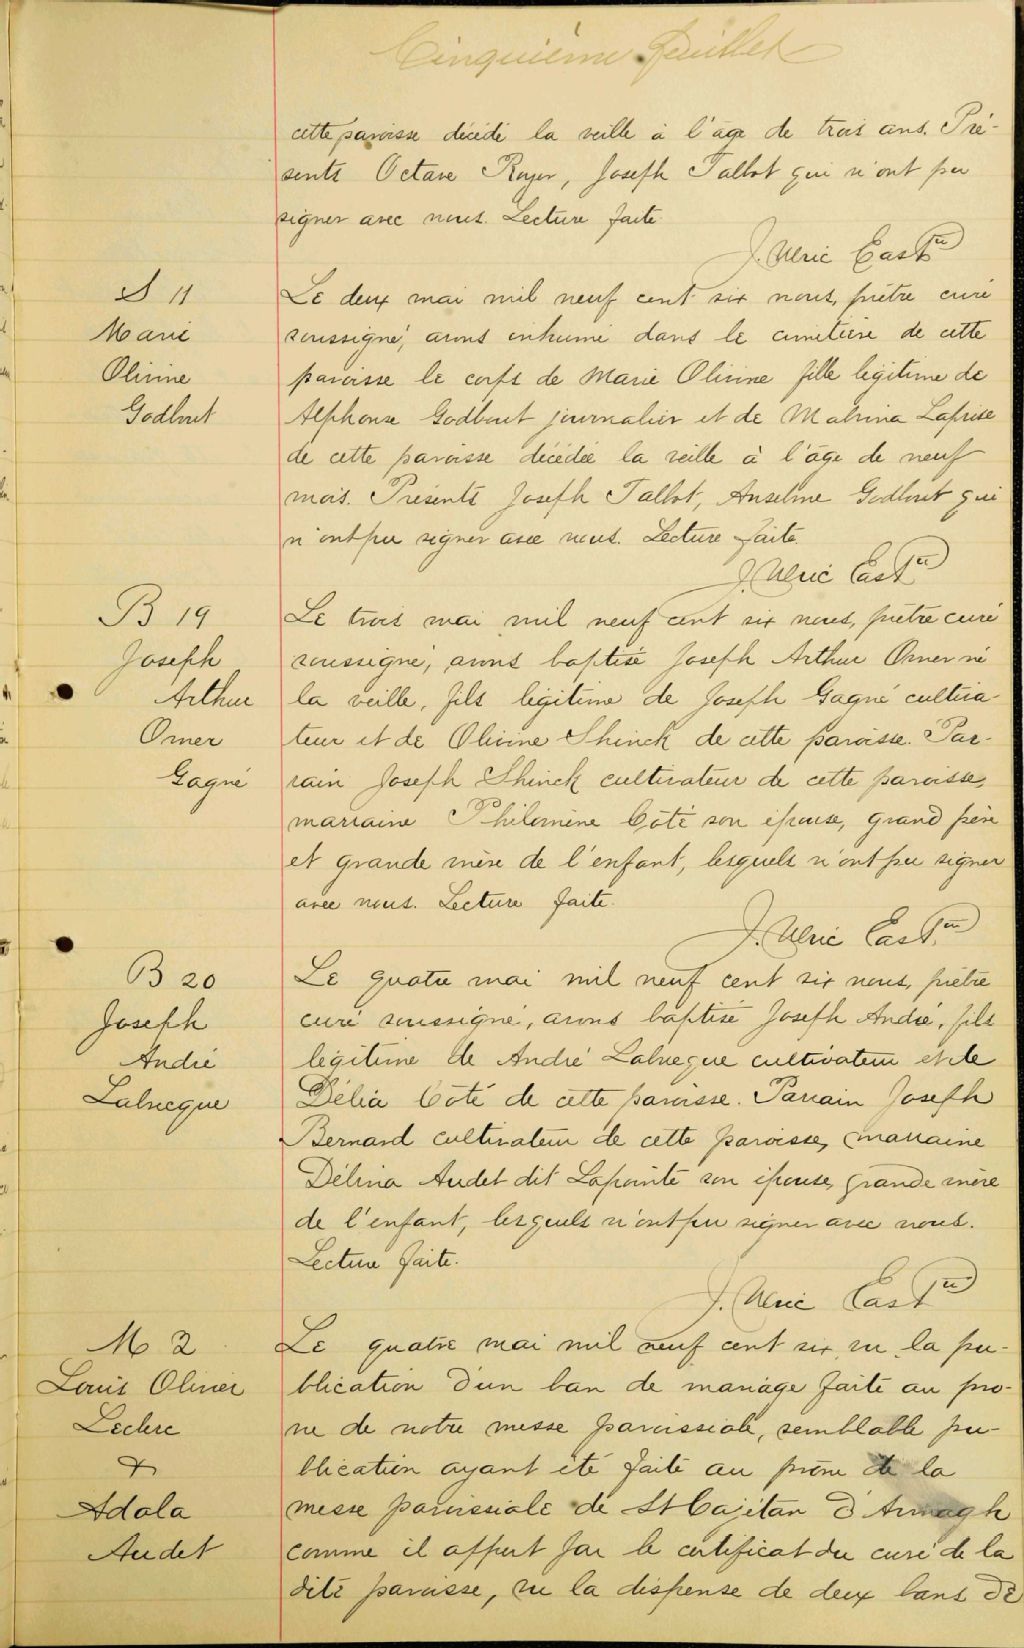 Cinquième feuillet
cette paroisse décédé la veille à l'âge de trois ans. Pré-
sents Octave Royer, Joseph Talbot qui n'ont pu
signer avec nous. Lecture faite.
J. Ulric East ptre
S 11
Marie
Olivine
Godbout
Le deux mai mil neuf cent six nous, prêtre curé
soussigné, avons inhumé dans le cimetière de cette
paroisse le corps de Marie Olivine fille légitime de
Alphonse Godbout journalier et de Malvina Laprise
de cette paroisse décédée la veille à l'âge de neuf
mois. Présents Joseph Talbot, Anselme Godbout qui
n'ont pu signer avec nous. Lecture faite.
J. Ulric East ptre
B 19
Joseph
Arthur
Omer
Gagné
Le trois mai mil neuf cent six nous, prêtre curé
soussigné, avons baptisé Joseph Arthur Omer né
la veille, fils légitime de Joseph Gagné cultiva-
teur et de Olivine Shinck de cette paroisse. Par-
rain Joseph Shinck cultivateur de cette paroisse,
marraine Philomène Côté son épouse, grand père
et grande mère de l'enfant, lesquels n'ont pu signer
avec nous. Lecture faite.
J. Ulric East ptre
B 20
Joseph
André
Labrecque
Le quatre mai mil neuf cent six nous, prêtre
curé soussigné, avons baptisé Joseph André, fils
légitime de André Labrecque cultivateur et de
Délia Côté de cette paroisse. Parrain Joseph
Bernard cultivateur de cette paroisse, marraine
Délina Audet dit Lapointe son épouse, grande mère
de l'enfant, lesquels n'ont pu signer avec nous.
Lecture faite.
J. Ulric East ptre
M 2
Louis Olivier
Leclerc
&
Adala
Audet
Le quatre mai mil neuf cent six, vu la pu-
blication d'un ban de mariage faite au prô-
ne de notre messe paroissiale, semblable pu-
blication ayant été faite au prône de la
messe paroissiale de St Cajetan d'Armagh
comme il appert par le certificat du curé de la
dite paroisse, vu la dispense de deux bans de